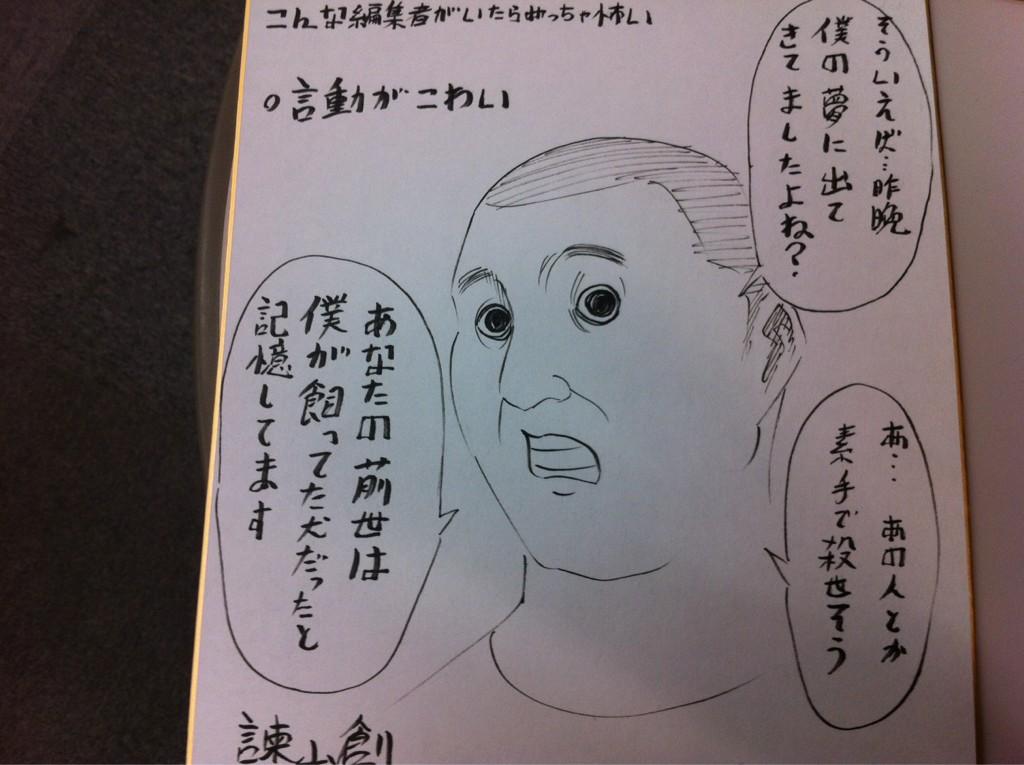 こんな編集者がいたらめっちゃ怖い
○言動がこわい
そういえば…昨晩
僕の夢に出て
きてましたよね?
あなたの前世は
僕が飼ってた犬だったと
記憶してます
あ… あの人とか
素手で殺せそう
諫山創